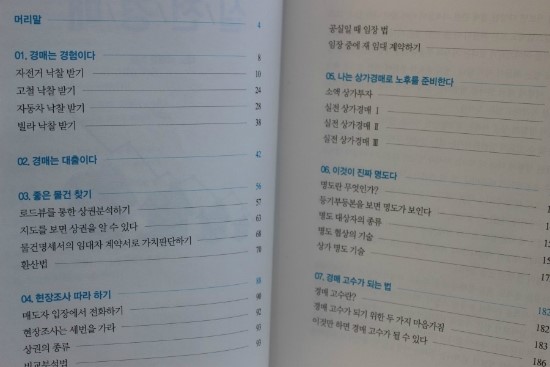 머리말 4
01. 경매는 경험이다 8
자전거 낙찰 받기 10
고철 낙찰 받기 24
자동차 낙찰 받기 28
빌라 낙찰 받기 38
02. 경매는 대출이다 42
03. 좋은 물건 찾기 56
로드뷰를 통한 상권분석하기 57
지도를 보면 상권을 알 수 있다 63
물건명세서의 임대차 계약서로 가치판단하기 68
환산법 70
04. 현장조사 따라 하기
매도자 입장에서 전화하기
현장조사는 세번을 가라 92
상권의 종류
비교분석법
공실일 때 임장 법
임장 중에 재 임대 계약하기
05. 나는 상가경매로 노후를 준비한다
소액 상가투자
실전 상가경매 Ⅰ
실전 상가경매 Ⅱ
실전 상가경매 Ⅲ
06. 이것이 진짜 명도다
명도란 무엇인가?
등기부등본을 보면 명도가 보인다
명도 대상자의 종류
명도 협상의 기술
상가 명도 기술
07. 경매 고수가 되는 법 182
경매 고수란? 182
경매 고수가 되기 위한 두 가지 마음가짐 183
이것만 하면 경매 고수가 될 수 있다 186